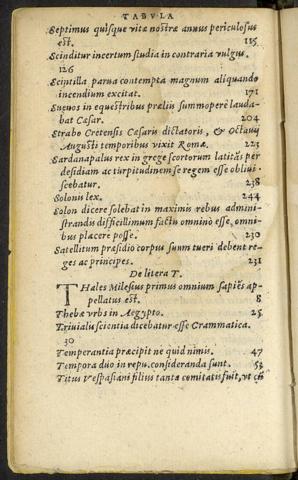 TABVLA
Septimus quisque vitæ nostræ annus periculosus
est. 115
Scinditur incertum studia in contraria vulgus.
126
Scintilla parua contempta magnum aliquando
incendium excitat. 171
Sueuos in equestribus prælijs summoperè lauda-
bat Cæsar. 204
Strabo Cretensis Cæsaris dictatoris, & Octauij
Augusti temporibus vixit Romæ. 223
Sardanapalus rex in grege scortorum latitās per
desidiam ac turpitudinem se regem esse obliui-
scebatur. 238
Solonis lex. 244
Solon dicere solebat in maximis rebus admini-
strandis difficillimum factu omninò esse, omni-
bus placere posse. 230
Satellitum præsidio corpus suum tueri debent re-
ges ac principes. 231
De litera T.
THales Milesius primus omnium sapiēs ap-
pellatus est. 8
Thebæ vrbs in Aegypto. 25
Triuialis scientia dicebatur esse Grammatica.
30
Temperantia præcipit ne quid nimis. 47
Tempora duo in repu. consideranda sunt. 53
Titus Vespasiani filius tanta comitatis fuit, vt